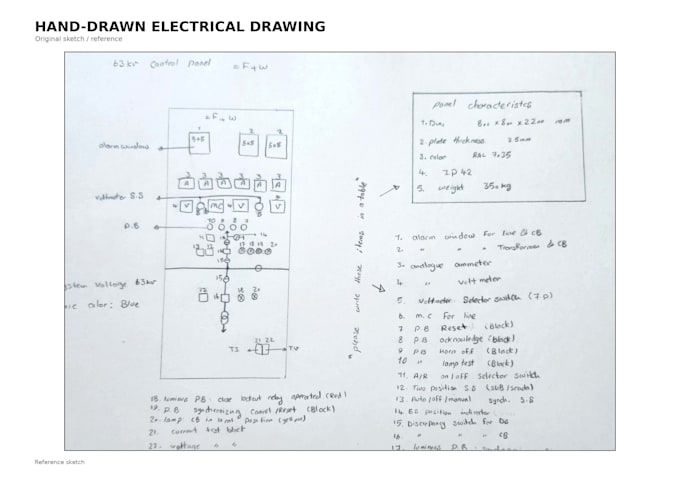 HAND-DRAWN ELECTRICAL DRAWING
Original sketch / reference
63kv Control panel = F+W
= F+W
alarm window
8x8
5x5
5x5
A A A A A A
voltmeter S.S
V MC V V
P.B
System voltage 63kv
color: Blue
TS
21 22
T.V
"please write those items in a table"
panel characteristcs
1. Dim
2. plate thickness 2.5mm
3. color RAL 7035
4. IP 42
5. weight 350 kg
1. alarm window for line & CB
2. " " " Transformer & CB
3. analogue ammeter
4. " volt meter
5. Voltmeter Selector switch (7.P)
6. m.c For line
7 P.B Reset (Black)
8 P.B acknowledge (black)
9 P.B horn off (Black)
10 " lamp test (Black)
11. A/R on/off Selector Switch
12. Two position S.S
13. Auto/off/manual synch. S.S
14. position indicator
15. Discrepancy Switch for DS
16. " " " CB
17. luminous P.B
18. luminous P.B: close lockout relay operated (Red)
19. P.B synchronizing Cancel/Reset (Black)
20. lamp CB in local position (yellow)
21. current test block
22. voltage " "
Reference sketch